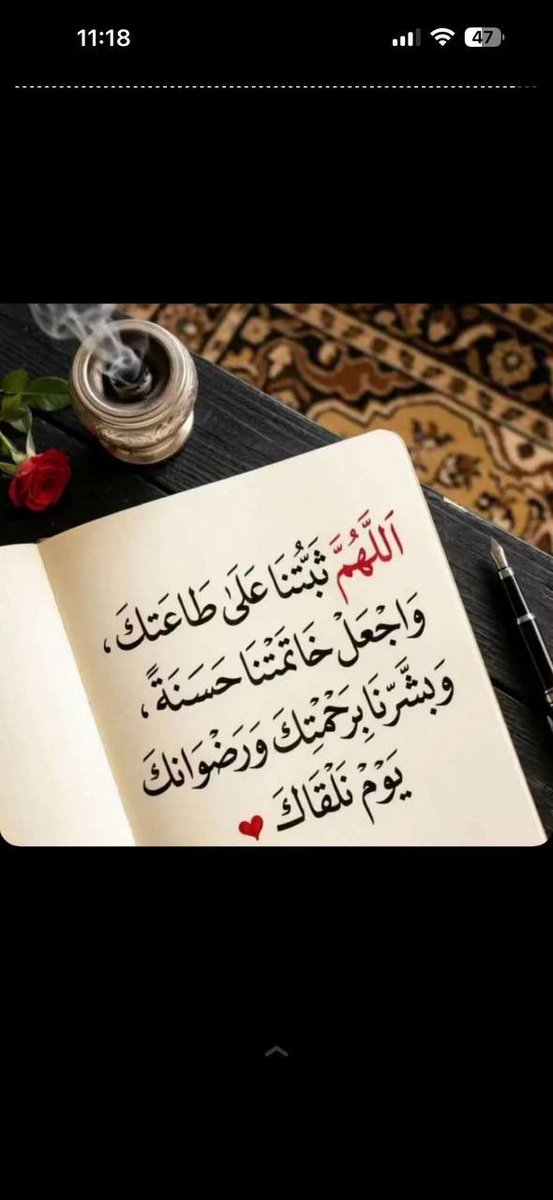 11:18
47
اَللَّهُمَّ ثَبِّتْنَا عَلَىٰ طَاعَتِكَ،
وَاجْعَلْ خَاتِمَتْنَا حَسَنَةً،
وَبَشِّرْنَا بِرَحْمَتِكَ وَرَضْوَانِكَ
يَوْمْ نَلْقَاكَ